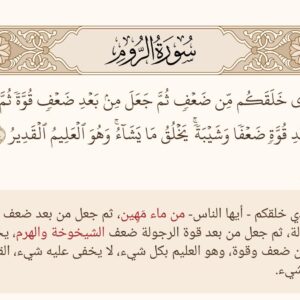 سُورَةُ الرُّومِ
خَلَقَكُم مِّن ضَعْفٍ ثُمَّ جَعَلَ مِنۢ بَعْدِ ضَعْفٍ قُوَّةً ثُمَّ
قُوَّةٍ ضَعْفًا وَشَيْبَةً ۚ يَخْلُقُ مَا يَشَآءُ ۖ وَهُوَ ٱلْعَلِيمُ ٱلْقَدِيرُ
ي خلقكم - أيها الناس- من ماء مَهين، ثم جعل من بعد ضعف
لة، ثم جعل من بعد قوة الرجولة ضعف الشيخوخة والهرم، يخ
ن ضعف وقوة، وهو العليم بكل شيء، لا يخفى عليه شيء، الق
يء.